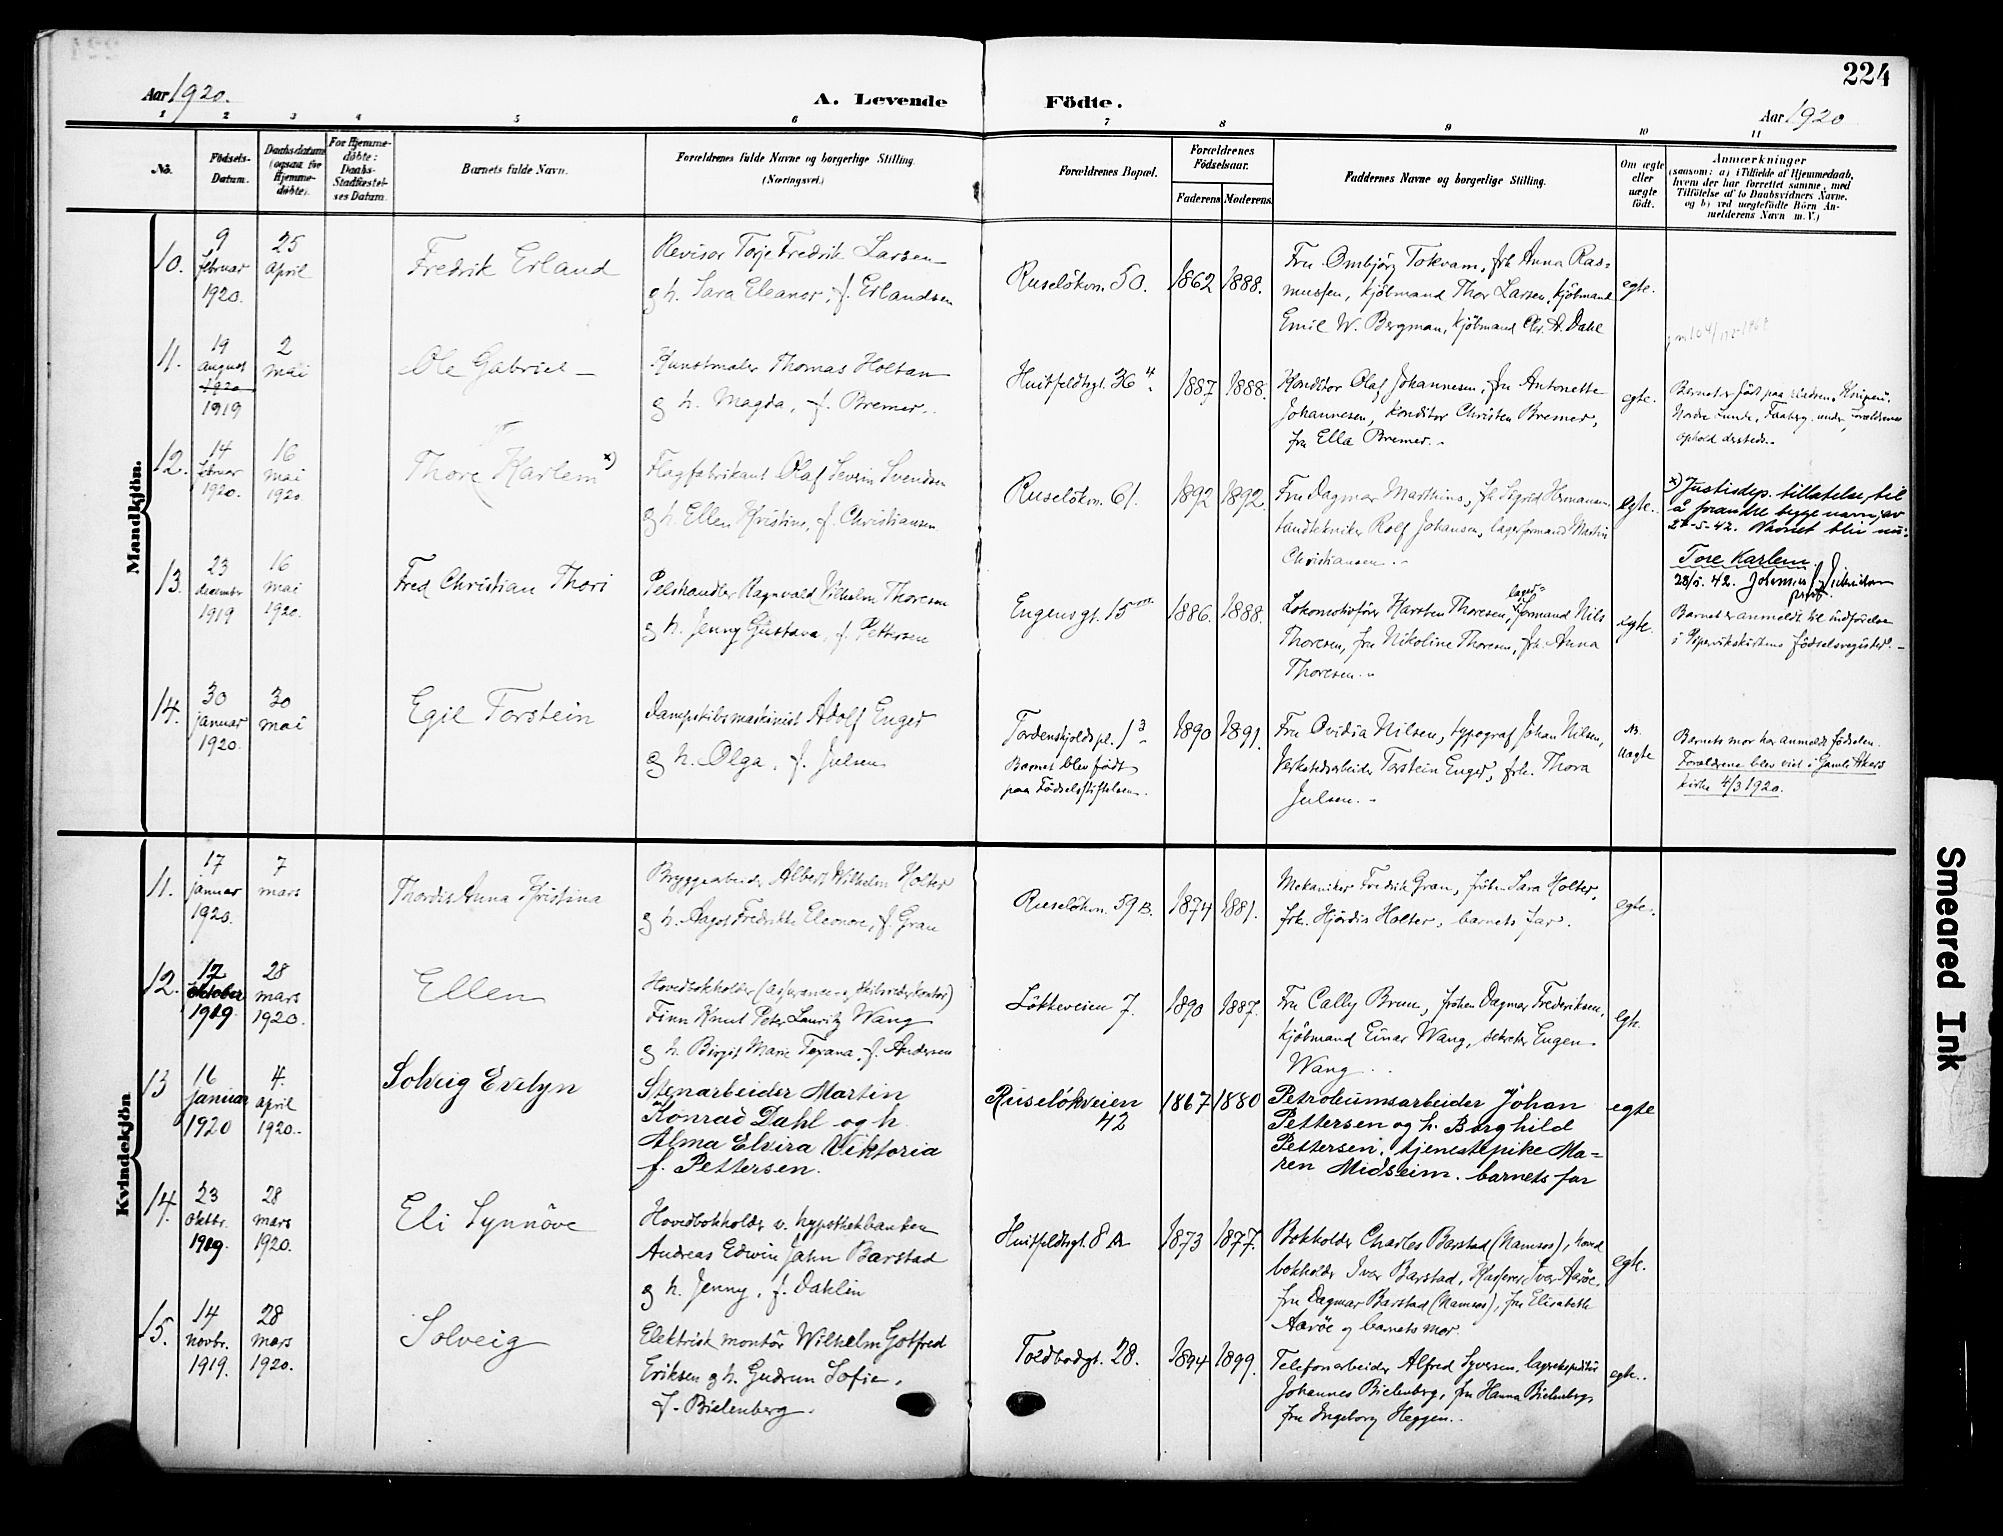 224
Aar 1920.
A. Levende
Födte.
Aar 1920
1 2 3 4 5 6 7 8 9 10 11
No.
Födsels-
Datum.
Daabsdatum
(ogsaa for
Hjemme-
döbte).
For Hjemme-
döbte:
Daabs-
Stadfæstel-
ses Datum.
Barnets fulde Navn.
Forældrenes fulde Navne og borgerlige Stilling.
(Næringsvei.)
Forældrenes Bopæl.
Forældrenes
Födselsaar.
Faderens Moderens
Faddernes Navne og borgerlige Stilling.
Om ægte
eller
uægte
födt.
Anmærkninger
(saasom: a) i Tilfælde af Hjemmedaab,
hvem der har forrettet samme, med
Tilföielse af to Daabsvidners Navne.
og b) ved uægtefödte Börn An-
melderens Navn m. V.)
Mandkjön.
10.
9
februar
1920.
25
april
Fredrik Erland
Revisor Torje Fredrik Larsen
og h. Sara Eleanor, f. Erlandsen
Ruselökvn. 50.
1862 1888.
Fru Ombjörg Tokvam, frk. Anna Ras-
mussen, kjöbmand Thor Larsen, kjöbmand
Emil W. Bergman, kjöbmand Chr. A. Dahl
egte.
11.
19
august
1920
1919
2
mai
Ole Gabriel
Kunstmaler Thomas Holtan
og h. Magda, f. Bremer.
Huitfeldtsgt. 36 4.
1887 1888.
Konditor Olaf Johannesen, fru Antonette
Johannesen, konditor Christen Bremer,
fru Ella Bremer.
egte.
Barnet er födt paa
Nordre Lunde, Faaberg, under forældrenes
ophold dersteds.
12.
14
februar
1920.
16
mai
1920.
Thore (Karlem x)
Flagfabrikant Olaf Severin Svendsen
og h. Ellen Kristine, f. Christiansen
Ruselökvn. 61.
1892 1892.
Fru Dagmar Mathins, frk. Sigrid Hermansen,
tandtekniker Rolf Johansen, lagerformand Martin
Christiansen.
egte.
x) Justisdep. tillatelse til
å forandre byggenavn, av
27-5-42. Navnet blir nu:
Tore Karlem.
28/5.42.
13.
23
december
1919
16
mai
1920.
Fred Christian Thori
Pelshandler Ragnvald Vilhelm Thoresen
og h. Jenny Gustava, f. Pettersen
Eugensgt. 15
1886. 1888.
Lokomotivförer Karsten Thoresen, lager-formand Nils
Thoresen, fru Nikoline Thoresen, frk. Anna
Thoresen.
egte.
Barnet er anmeldt til indförelse
i Pipervikskirkens födselsregister.
14.
30
januar
1920.
30
mai
Egil Torstein
Dampskibsmaskinist Adolf Enger
og h. Olga, f. Julsen
Tordenskjoldspl. 1 3
Barnet blev födt
paa Födselsstiftelsen.
1890 1891.
Fru Ovidia Nilsen, typograf Johan Nilsen,
Verkstedsarbeider Torstein Enger, frk. Thora
Julsen.
Uægte
Barnets mor har anmeldt födselen.
Forældrene blev viet i Gamle Akers
kirke 4/3 1920.
Kvindekjön
11.
17
januar
1920.
7
mars
Thordis Anna Kristina
Bryggearbeider Albert Wilhelm Holter
og h. Aagot Fredrikke Eleonore, f. Gran
Ruselökvn. 59 B.
1874 1881.
Mekaniker Fredrik Gran, fröken Sara Holter,
frk. Hjördis Holter, barnets far.
egte.
12.
17
oktober
1919.
28
mars
1920.
Ellen
Hovedbokholder (assurance- og skibsrederkontor)
Finn Knut Peter Lauritz Wang
og h. Birgit Marie Texana, f. Andersen
Lökkeveien 7.
1890 1887.
Fru Cally Brun, fröken Dagmar Frederiksen,
kjöbmand Einar Wang, sekretær Eugen
Wang
egte.
13
16
januar
1920
4.
april
1920.
Solveig Evelyn
Stenarbeider Martin
Konrad Dahl og h.
Alma Elvira Viktoria
f. Pettersen.
Ruselökveien
42
1867 1880
Petroleumsarbeider Johan
Pettersen og h. Borghild
Pettersen, tjenestepike Ma-
ren Midseim. barnets far
egte
14.
23
oktbr.
1919.
28
mars
1920.
Eli Synnöve
Hovedbokholder v. hypothekbanken
Andreas Edwin Jahn Barstad
og h. Jenny, f. Dahlin
Huitfeldtsgt. 8 A
1873 1877.
Bokholder Charles Barstad (Namsos), hoved
bokholder Iver Barstad, Kasserer Iver Aaröe,
fru Dagmar Barstad (Namsos), fru Elisabeth
Aaröe og barnets mor.
egte.
15.
14
novbr.
1919.
28
mars
1920.
Solveig
Elektrisk montör Wilhelm Gotfred
Eriksen og h. Gudrun Sofie,
f. Bielenberg.
Toldbodgt. 28.
1894 1899.
Telefonarbeider Alfred Syversen, lagerekspeditör
Johannes Bielenberg, fru Hanna Bielenberg,
fru Ingeborg Heggen.
egte.
Smeared Ink